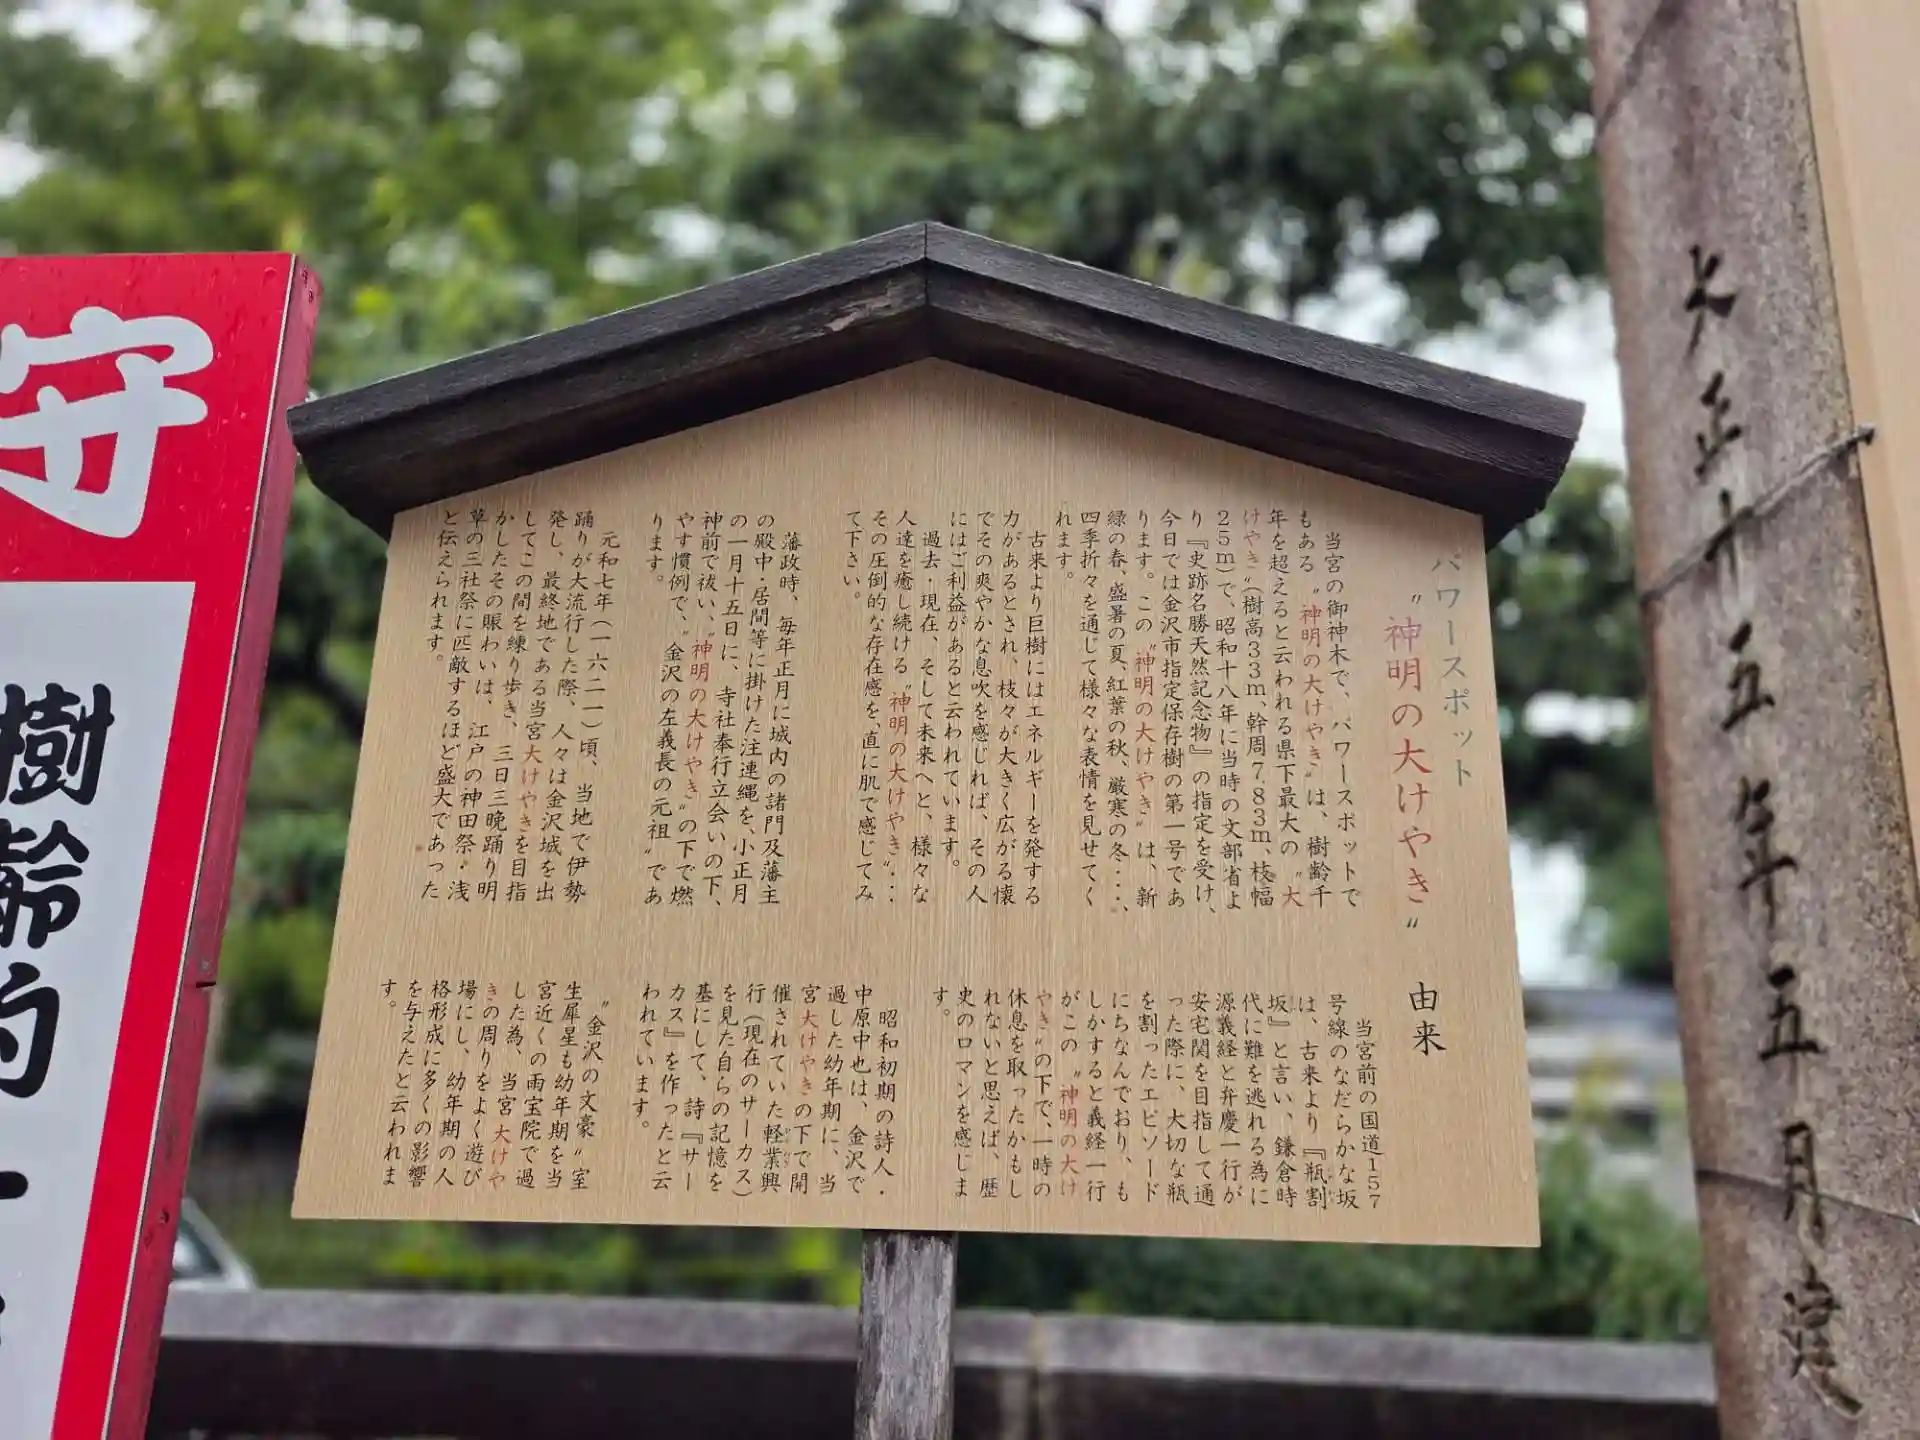 パワースポット
〝神明の大けやき〟 由来
当宮の御神木で、パワースポットで
もある〝神明の大けやき〟は、樹齢千
年を超えると云われる県下最大の〝大
けやき〟(樹高33m、幹周7.83m、枝幅
25m)で、昭和十八年に当時の文部省よ
り『史跡名勝天然記念物』の指定を受け、
今日では金沢市指定保存樹の第一号であ
ります。この〝神明の大けやき〟は、新
緑の春、盛暑の夏、紅葉の秋、厳寒の冬‥‥、
四季折々を通じて様々な表情を見せてく
れます。
古来より巨樹にはエネルギーを発する
力があるとされ、枝々が大きく広がる懐
でその爽やかな息吹を感じれば、その人
にはご利益があると云われています。
過去・現在、そして未来へと、様々な
人達を癒し続ける〝神明の大けやき〟‥‥
その圧倒的な存在感を、直に肌で感じてみ
て下さい。
藩政時、毎年正月に城内の諸門及藩主
の殿中・居間等に掛けた注連縄を、小正月
の一月十五日に、寺社奉行立会いの下、
神前で祓い、〝神明の大けやき〟の下で燃
やす慣例で、〝金沢の左義長の元祖〟であ
ります。
元和七年(一六二一)頃、当地で伊勢
踊りが大流行した際、人々は金沢城を出
発し、最終地である当宮大けやきを目指
してこの間を練り歩き、三日三晩踊り明
かしたその賑わいは、江戸の神田祭・浅
草の三社祭に匹敵するほど盛大であった
と伝えられます。
当宮前の国道157
号線のなだらかな坂
は、古来より『瓶割
坂』と言い、鎌倉時
代に難を逃れる為に
源義経と弁慶一行が
安宅関を目指して通
った際に、大切な瓶
を割ったエピソード
にちなんでおり、も
しかすると義経一行
がこの〝神明の大け
やき〟の下で、一時の
休息を取ったかもし
れないと思えば、歴
史のロマンを感じま
す。
昭和初期の詩人・
中原中也は、金沢で
過した幼年期に、当
宮大けやきの下で開
催されていた軽業興
行(現在のサーカス)
を見た自らの記憶を
基にして、詩『サー
カス』を作ったと云
われています。
〝金沢の文豪〟室
生犀星も幼年期を当
宮近くの雨宝院で過
した為、当宮大けや
きの周りをよく遊び
場にし、幼年期の人
格形成に多くの影響
を与えたと云われま
す。
大正十五年五月建
守
樹齢約一